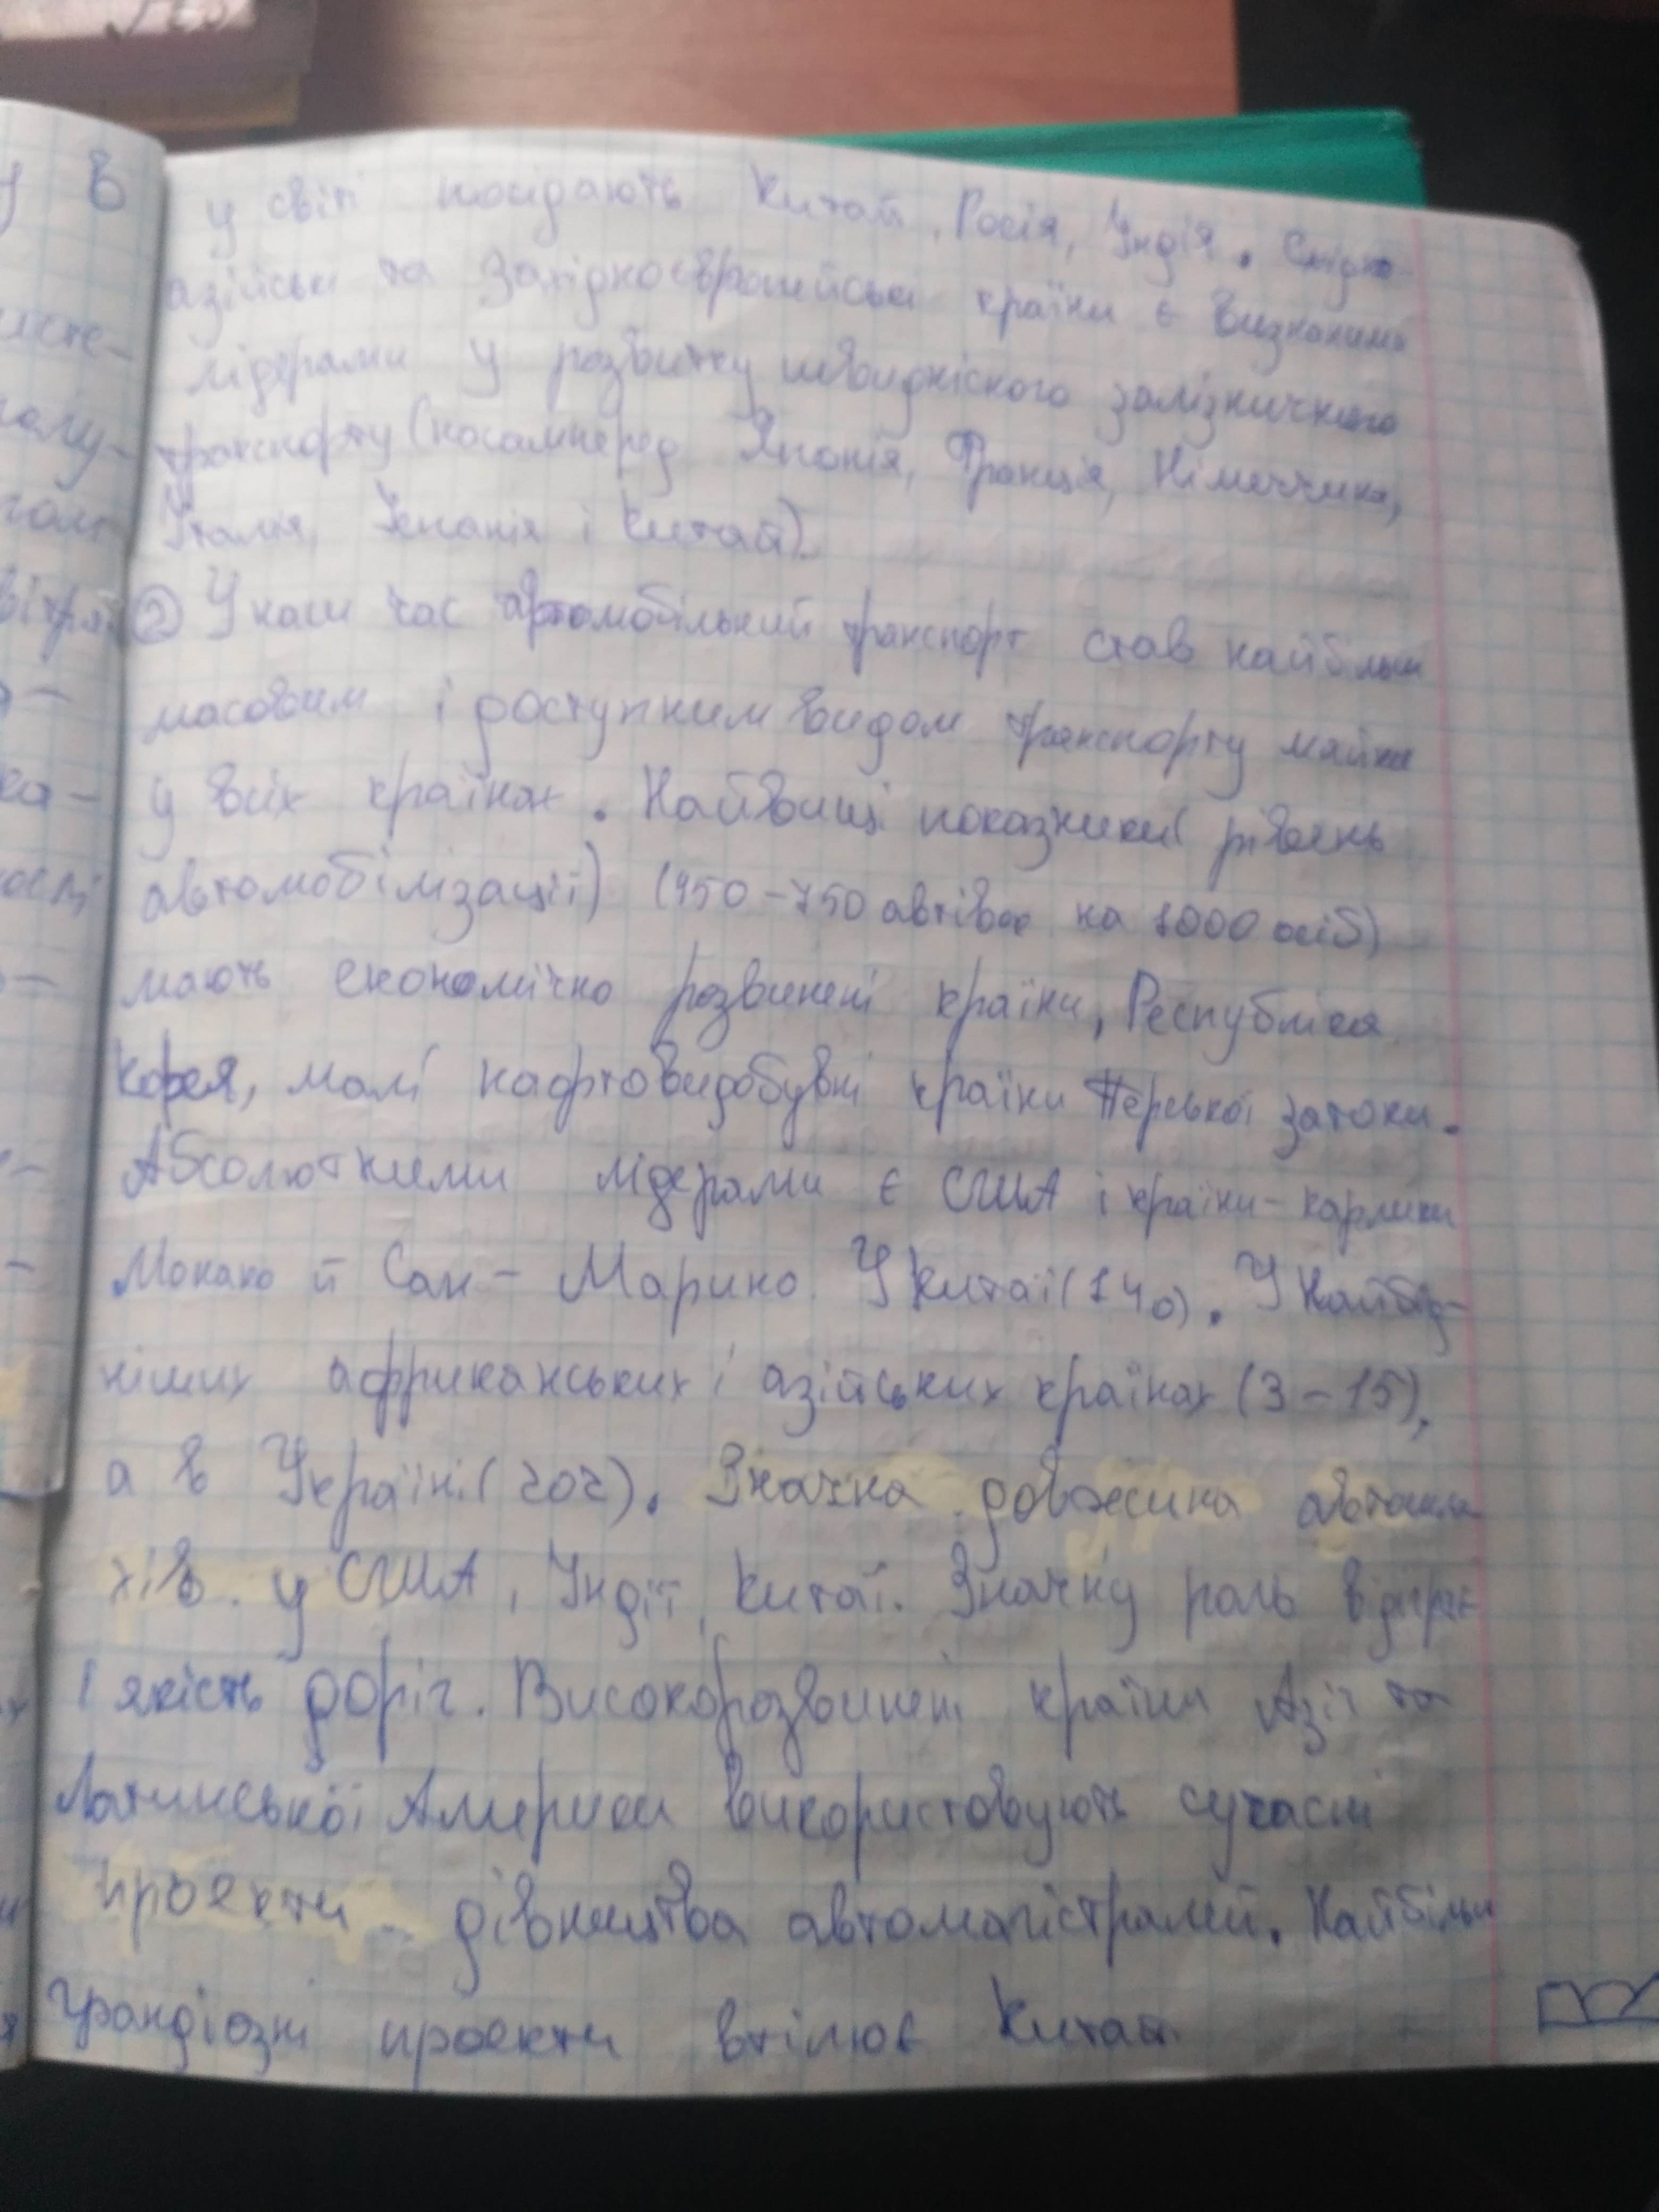 у світі посідають Китай, Росія, Індія. Східно
азійські та західноєвропейські країни є визнаними
лідерами у розвитку швидкісного залізничного
транспорту (насамперед Японія, Франція, Німеччина,
Італія, Іспанія і Китай).
② У наш час автомобільний транспорт став найбільш
масовим і доступним видом транспорту майже
у всіх країнах. Найвищі показники( рівень
автомобілізації) (450-750 автівок на 1000 осіб)
мають економічно розвинені країни, Республіка
Корея, малі нафтовидобувні країни Перської затоки.
Абсолютними лідерами є США і країни-карлики
Монако й Сан-Марино. У Китаї(140). У найбід-
ніших африканських і азійських країнах (3-15),
а в Україні.(202). Значна довжина автошля
хів у США, Індії, Китаї. Значну роль відіграє
і якість доріг. Високорозвинені країни Азії та
Латинської Америки використовують сучасні
проекти дівництва автомагістралей. Найбільш
грандіозні проекти втілює Китай